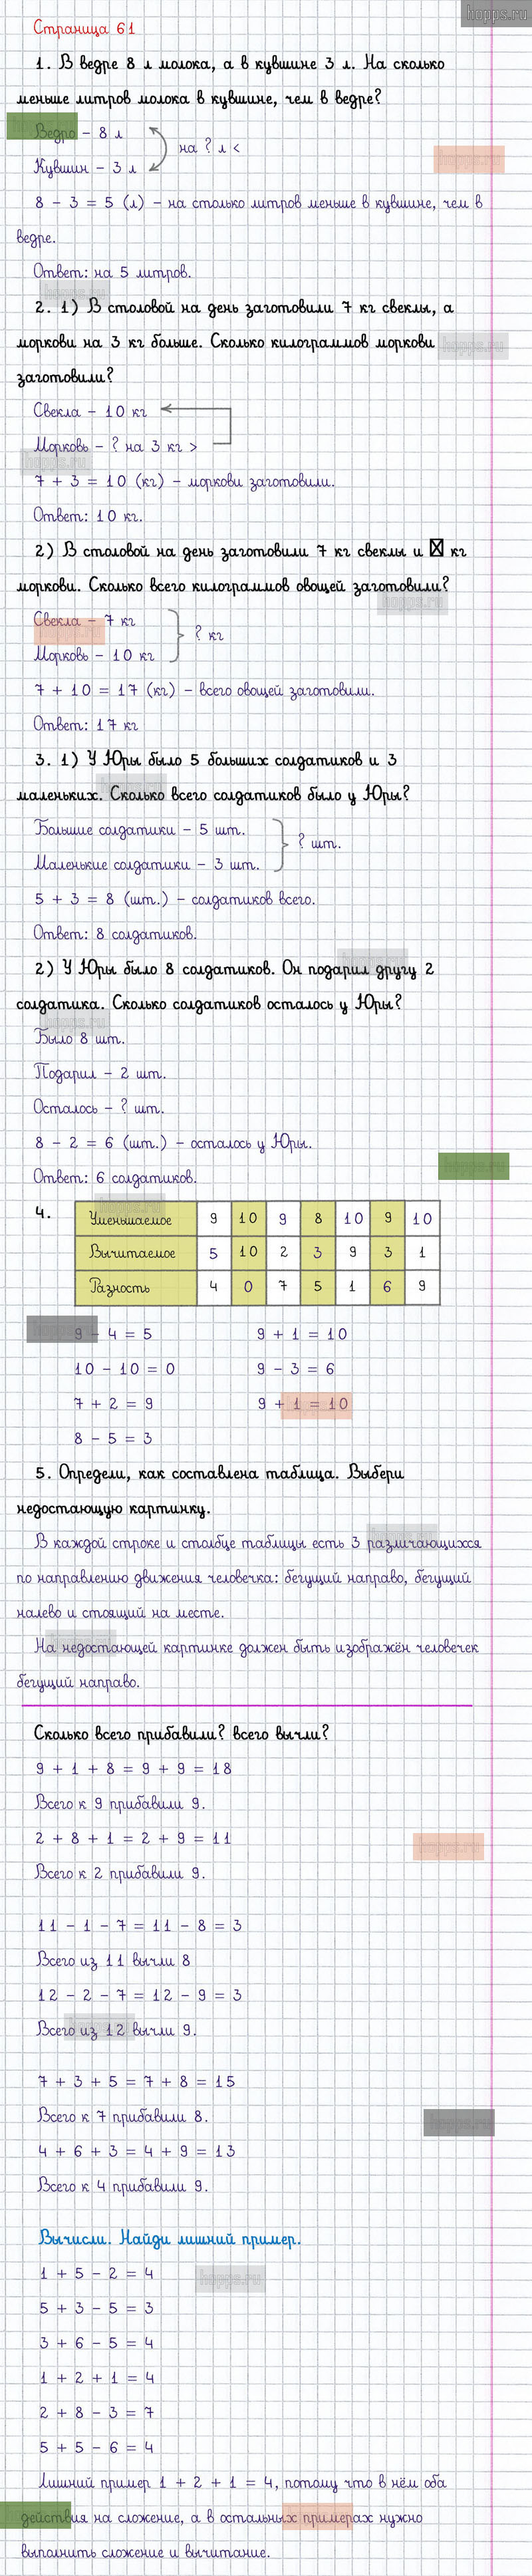 hopps.ru
Страница 61
1. В ведре 8 л молока, а в кувшине 3 л. На сколько
меньше литров молока в кувшине, чем в ведре?
Ведро – 8 л
на ? л <
Кувшин – 3 л
8 – 3 = 5 (л) – на столько литров меньше в кувшине, чем в
ведре.
Ответ: на 5 литров.
2. 1) В столовой на день заготовили 7 кг свеклы, а
моркови на 3 кг больше. Сколько килограммов моркови
заготовили?
Свекла – 10 кг
Морковь – ? на 3 кг >
7 + 3 = 10 (кг) – моркови заготовили.
Ответ: 10 кг.
2) В столовой на день заготовили 7 кг свеклы и ☒ кг
моркови. Сколько всего килограммов овощей заготовили?
Свекла – 7 кг
? кг
Морковь – 10 кг
7 + 10 = 17 (кг) – всего овощей заготовили.
Ответ: 17 кг
3. 1) У Юры было 5 больших солдатиков и 3
маленьких. Сколько всего солдатиков было у Юры?
Большие солдатики – 5 шт.
? шт.
Маленькие солдатики – 3 шт.
5 + 3 = 8 (шт.) – солдатиков всего.
Ответ: 8 солдатиков.
2) У Юры было 8 солдатиков. Он подарил другу 2
солдатика. Сколько солдатиков осталось у Юры?
Было 8 шт.
Подарил – 2 шт.
Осталось – ? шт.
8 – 2 = 6 (шт.) – осталось у Юры.
Ответ: 6 солдатиков.
4. Уменьшаемое 9 10 9 8 10 9 10
Вычитаемое 5 10 2 3 9 3 1
Разность 4 0 7 5 1 6 9
9 – 4 = 5 9 + 1 = 10
10 – 10 = 0 9 – 3 = 6
7 + 2 = 9 9 + 1 = 10
8 – 5 = 3
5. Определи, как составлена таблица. Выбери
недостающую картинку.
В каждой строке и столбце таблицы есть 3 различающихся
по направлению движения человечка: бегущий направо, бегущий
налево и стоящий на месте.
На недостающей картинке должен быть изображён человечек
бегущий направо.
Сколько всего прибавили? всего вычли?
9 + 1 + 8 = 9 + 9 = 18
Всего к 9 прибавили 9.
2 + 8 + 1 = 2 + 9 = 11
Всего к 2 прибавили 9.
11 – 1 – 7 = 11 – 8 = 3
Всего из 11 вычли 8
12 – 2 – 7 = 12 – 9 = 3
Всего из 12 вычли 9.
7 + 3 + 5 = 7 + 8 = 15
Всего к 7 прибавили 8.
4 + 6 + 3 = 4 + 9 = 13
Всего к 4 прибавили 9.
Вычисли. Найди лишний пример.
1 + 5 – 2 = 4
5 + 3 – 5 = 3
3 + 6 – 5 = 4
1 + 2 + 1 = 4
2 + 8 – 3 = 7
5 + 5 – 6 = 4
Лишний пример 1 + 2 + 1 = 4, потому что в нём оба
действия на сложение, а в остальных примерах нужно
выполнить сложение и вычитание.